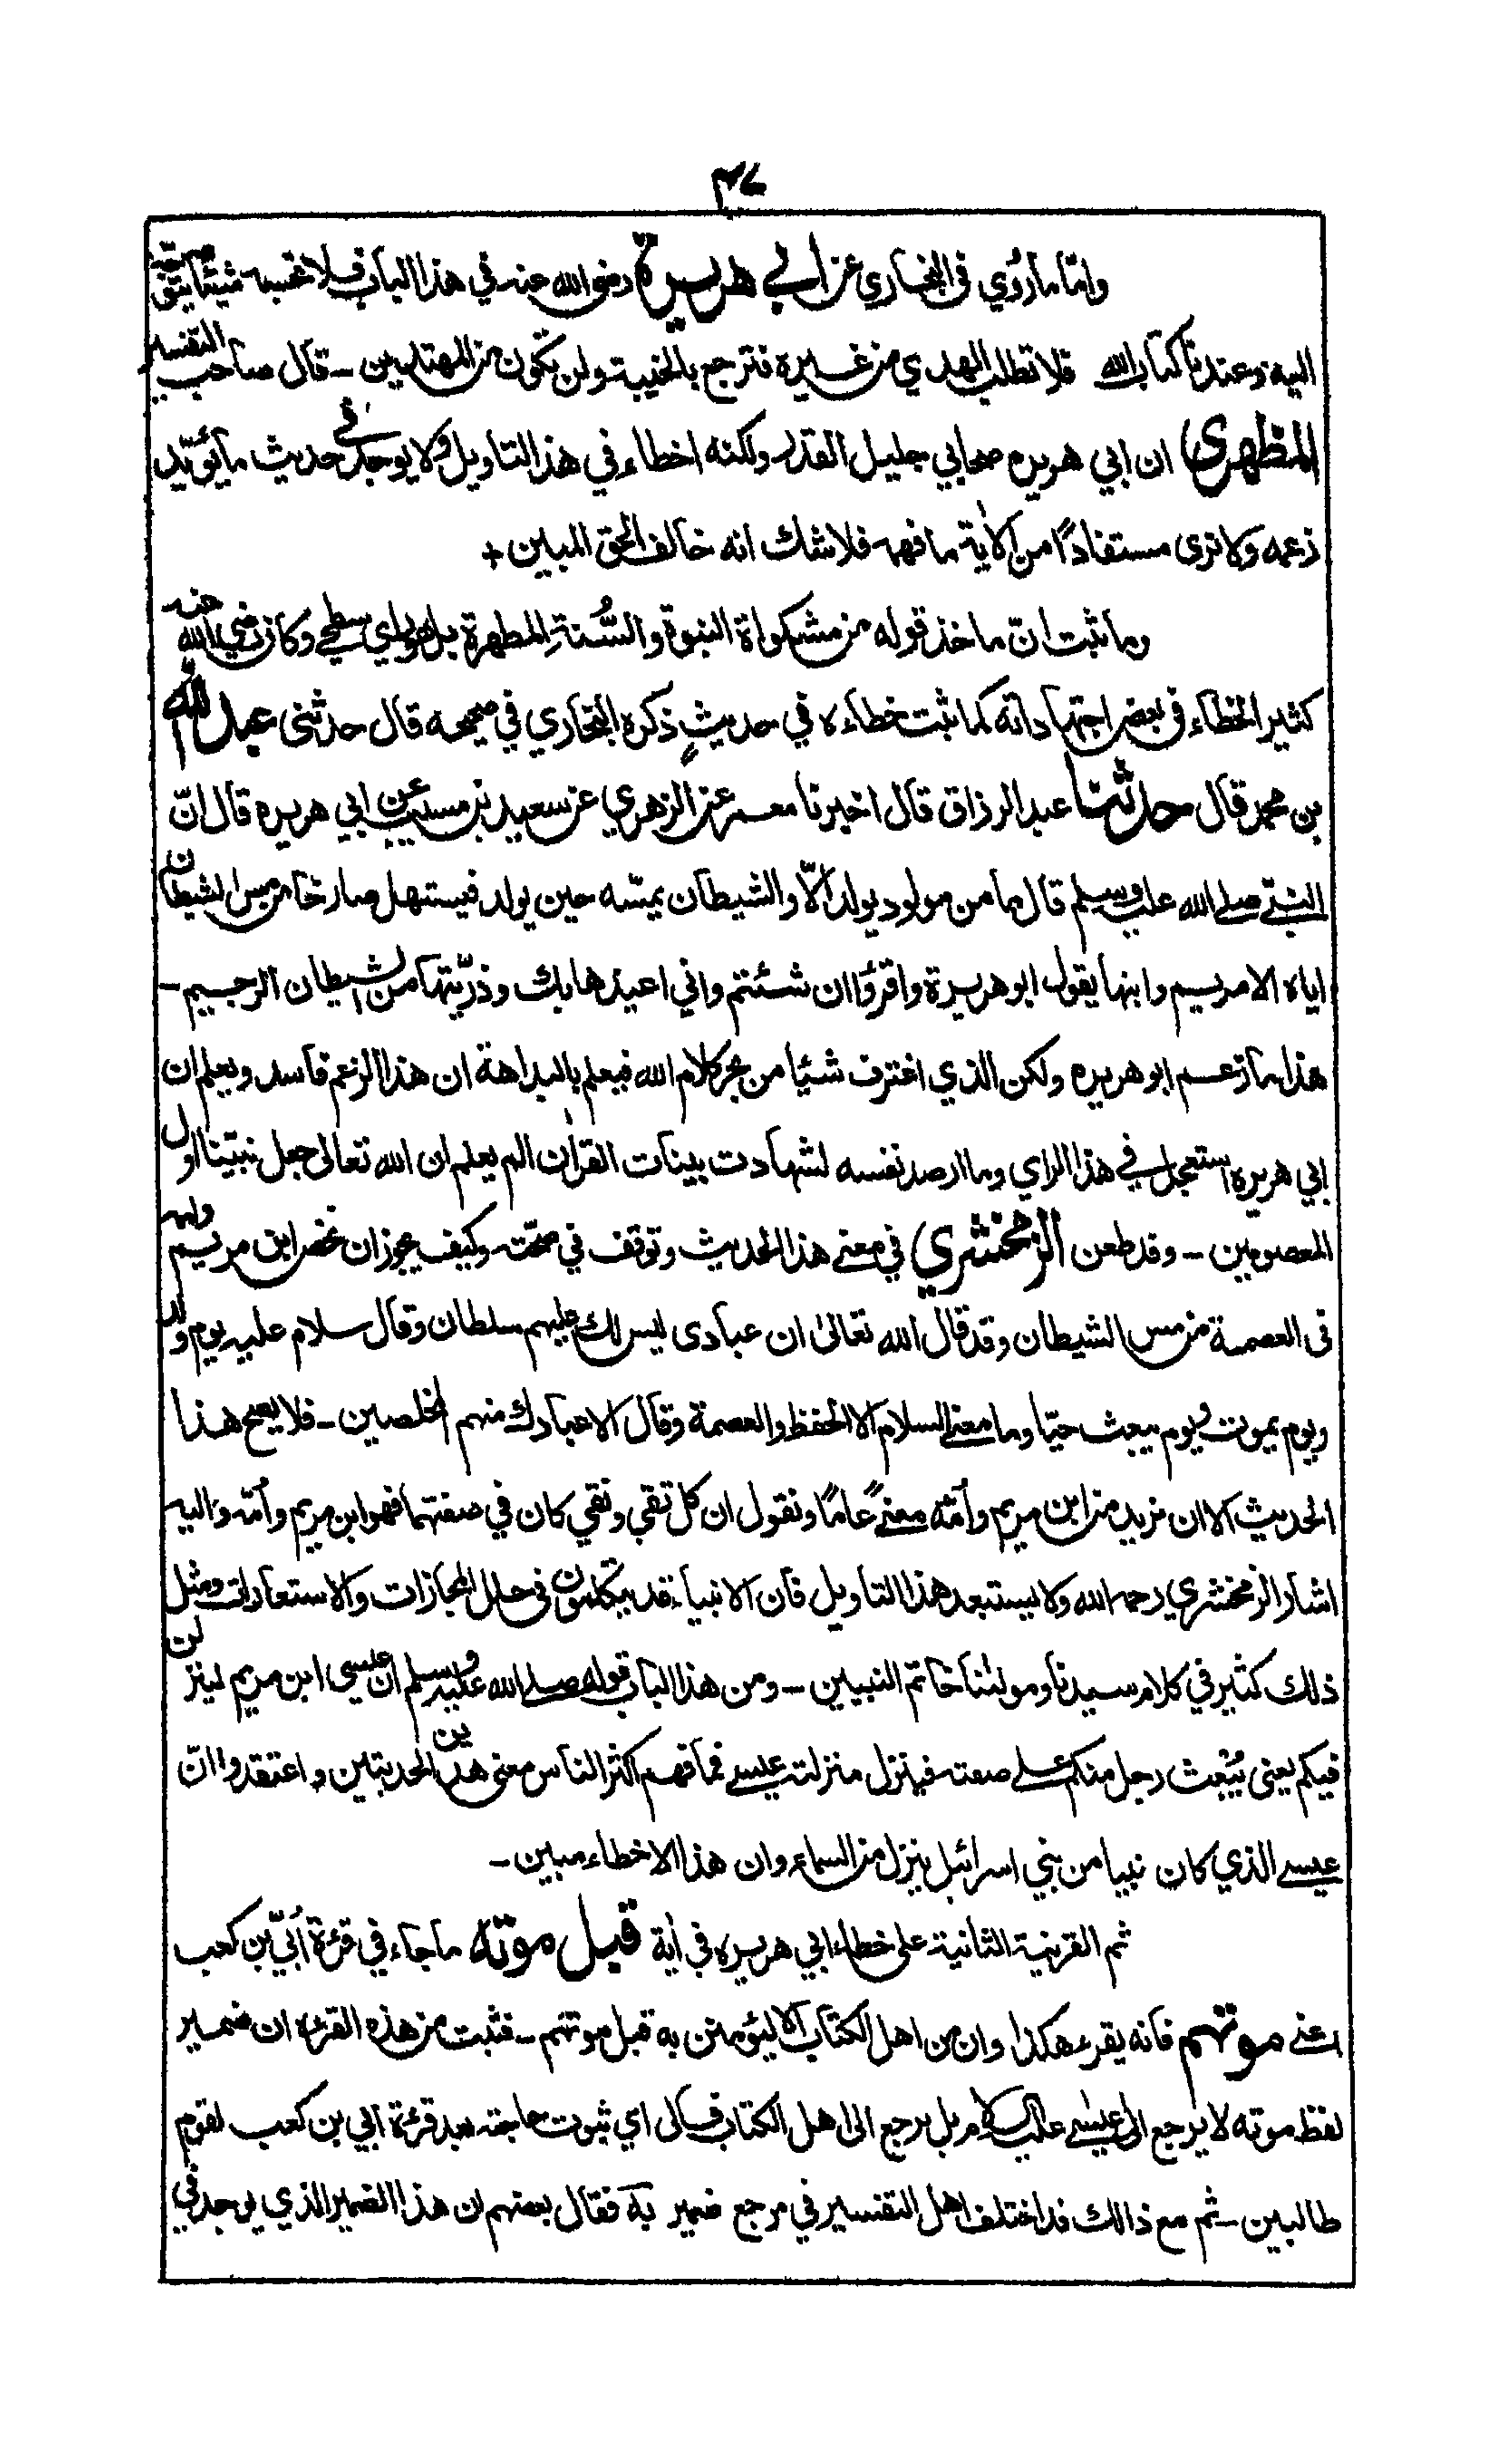 ٤٧
وامّا ما رُوي في البخاري عن ابي هريرة رضي الله عنه في هذا الباب فلا تحسبه شيئًا يتوجّه
اليه وعندنا كتاب الله فلا تطلب الهدي من غيره فترجع بالخيبة ولن تكون من المهتدين - قال صاحب التفسير
المظهري ان ابي هريره صحابي جليل القدر ولكنه اخطاء في هذا التاويل ولا يوجد في حديث ما يؤيّد
زعمه ولا نرى مستفادًا من الأية ما فهمه فلا شك انه خالف الحق المبين +
وما ثبت انّ ماخذ قوله من مشكواة النبوة والسُّنة المطهرة بل هو راي سطحي وكان رضي الله عنه
كثير الخطاء في بعض اجتهاداته كما ثبت خطاءه في حديثٍ ذكره البخاري في صحيحه قال حدثني عبد الله
بن محمد قال حدثنا عبد الرزاق قال اخبرنا معمر عن الزهري عن سعيد بن مسيب عن ابي هريره قال انّ
النبيّ صلى الله عليه وسلم قال ما من مولود يولد الّا والشيطان يمسّه حين يولد فيستهل صارخًا من مس الشيطان
اياه الا مريم وابنها يقول ابو هريرة واقرؤا ان شئتم واني اعيذها بك وذرّيتها من الشيطان الرجيم -
هذا ما زعم ابو هريره ولكن الذي اغترف شئيا من بحر كلام الله فيعلم بالبداهة ان هذا الزعم فاسد ويعلم ان
ابي هريره استعجل في هذا الراي وما ارصد نفسه لشهادت بينات القرأن الم يعلم ان الله تعالى جعل نبيّنا اول
المعصومين - وقد طعن الزمخشري في معنى هذا الحديث وتوقف في صحّته وكيف يجوز ان نخص ابن مريم وامه
في العصمة من مس الشيطان وقد قال الله تعالى ان عبادى ليس لك عليهم سلطان وقال سلام عليه يوم ولد
ويوم يموت ويوم يبعث حيّا وما معنى السلام الا الحفظ والعصمة وقال الا عبادك منهم المخلصين - فلا يصح هذا
الحديث الا ان نريد من ابن مريم وأمّه معنىً عامًا ونقول ان كل تقي ونقي كان في صفتهما فهو ابن مريم وأمّه واليه
اشار الزمخشري رحمه الله ولا يستبعد هذا التاويل فان الانبياء قد يتكلمون في حلل المجازات والاستعارات ومثل
ذلك كثير في كلام سيدنا ومولٰنا خاتم النبيين - ومن هذا الباب قوله صلى الله عليه وسلم ان عيسى ابن مريم لينزلن
فيكم يعني يُبعث رجل منكم على صفته فينزل منزلته عيسى فما فهم اكثر الناس معنى هذين الحديثين واعتقدوا انّ
عيسى الذي كان نبيا من بني اسرائيل ينزل من السماء وان هذا الا خطاء مبين -
ثم القرينة الثانية على خطاء ابي هريره في أية قبل موته ما جاء في قرءة أُبَيّ بن كعب
اعني موتهم فانه يقرء هكذا وان من اهل الكتاب الا ليؤمنن به قبل موتهم - فثبت من هذه القرءة ان ضمير
لفظ موته لا يرجع الى عيسى عليه السلام بل يرجع الى اهل الكتاب فالى اي ثبوت حاجته بعد قرءة ابي بن كعب لقوم
طالبين - ثم مع ذالك قد اختلف اهل التفسير في مرجع ضمير به فقال بعضهم ان هذا الضمير الذي يوجد في